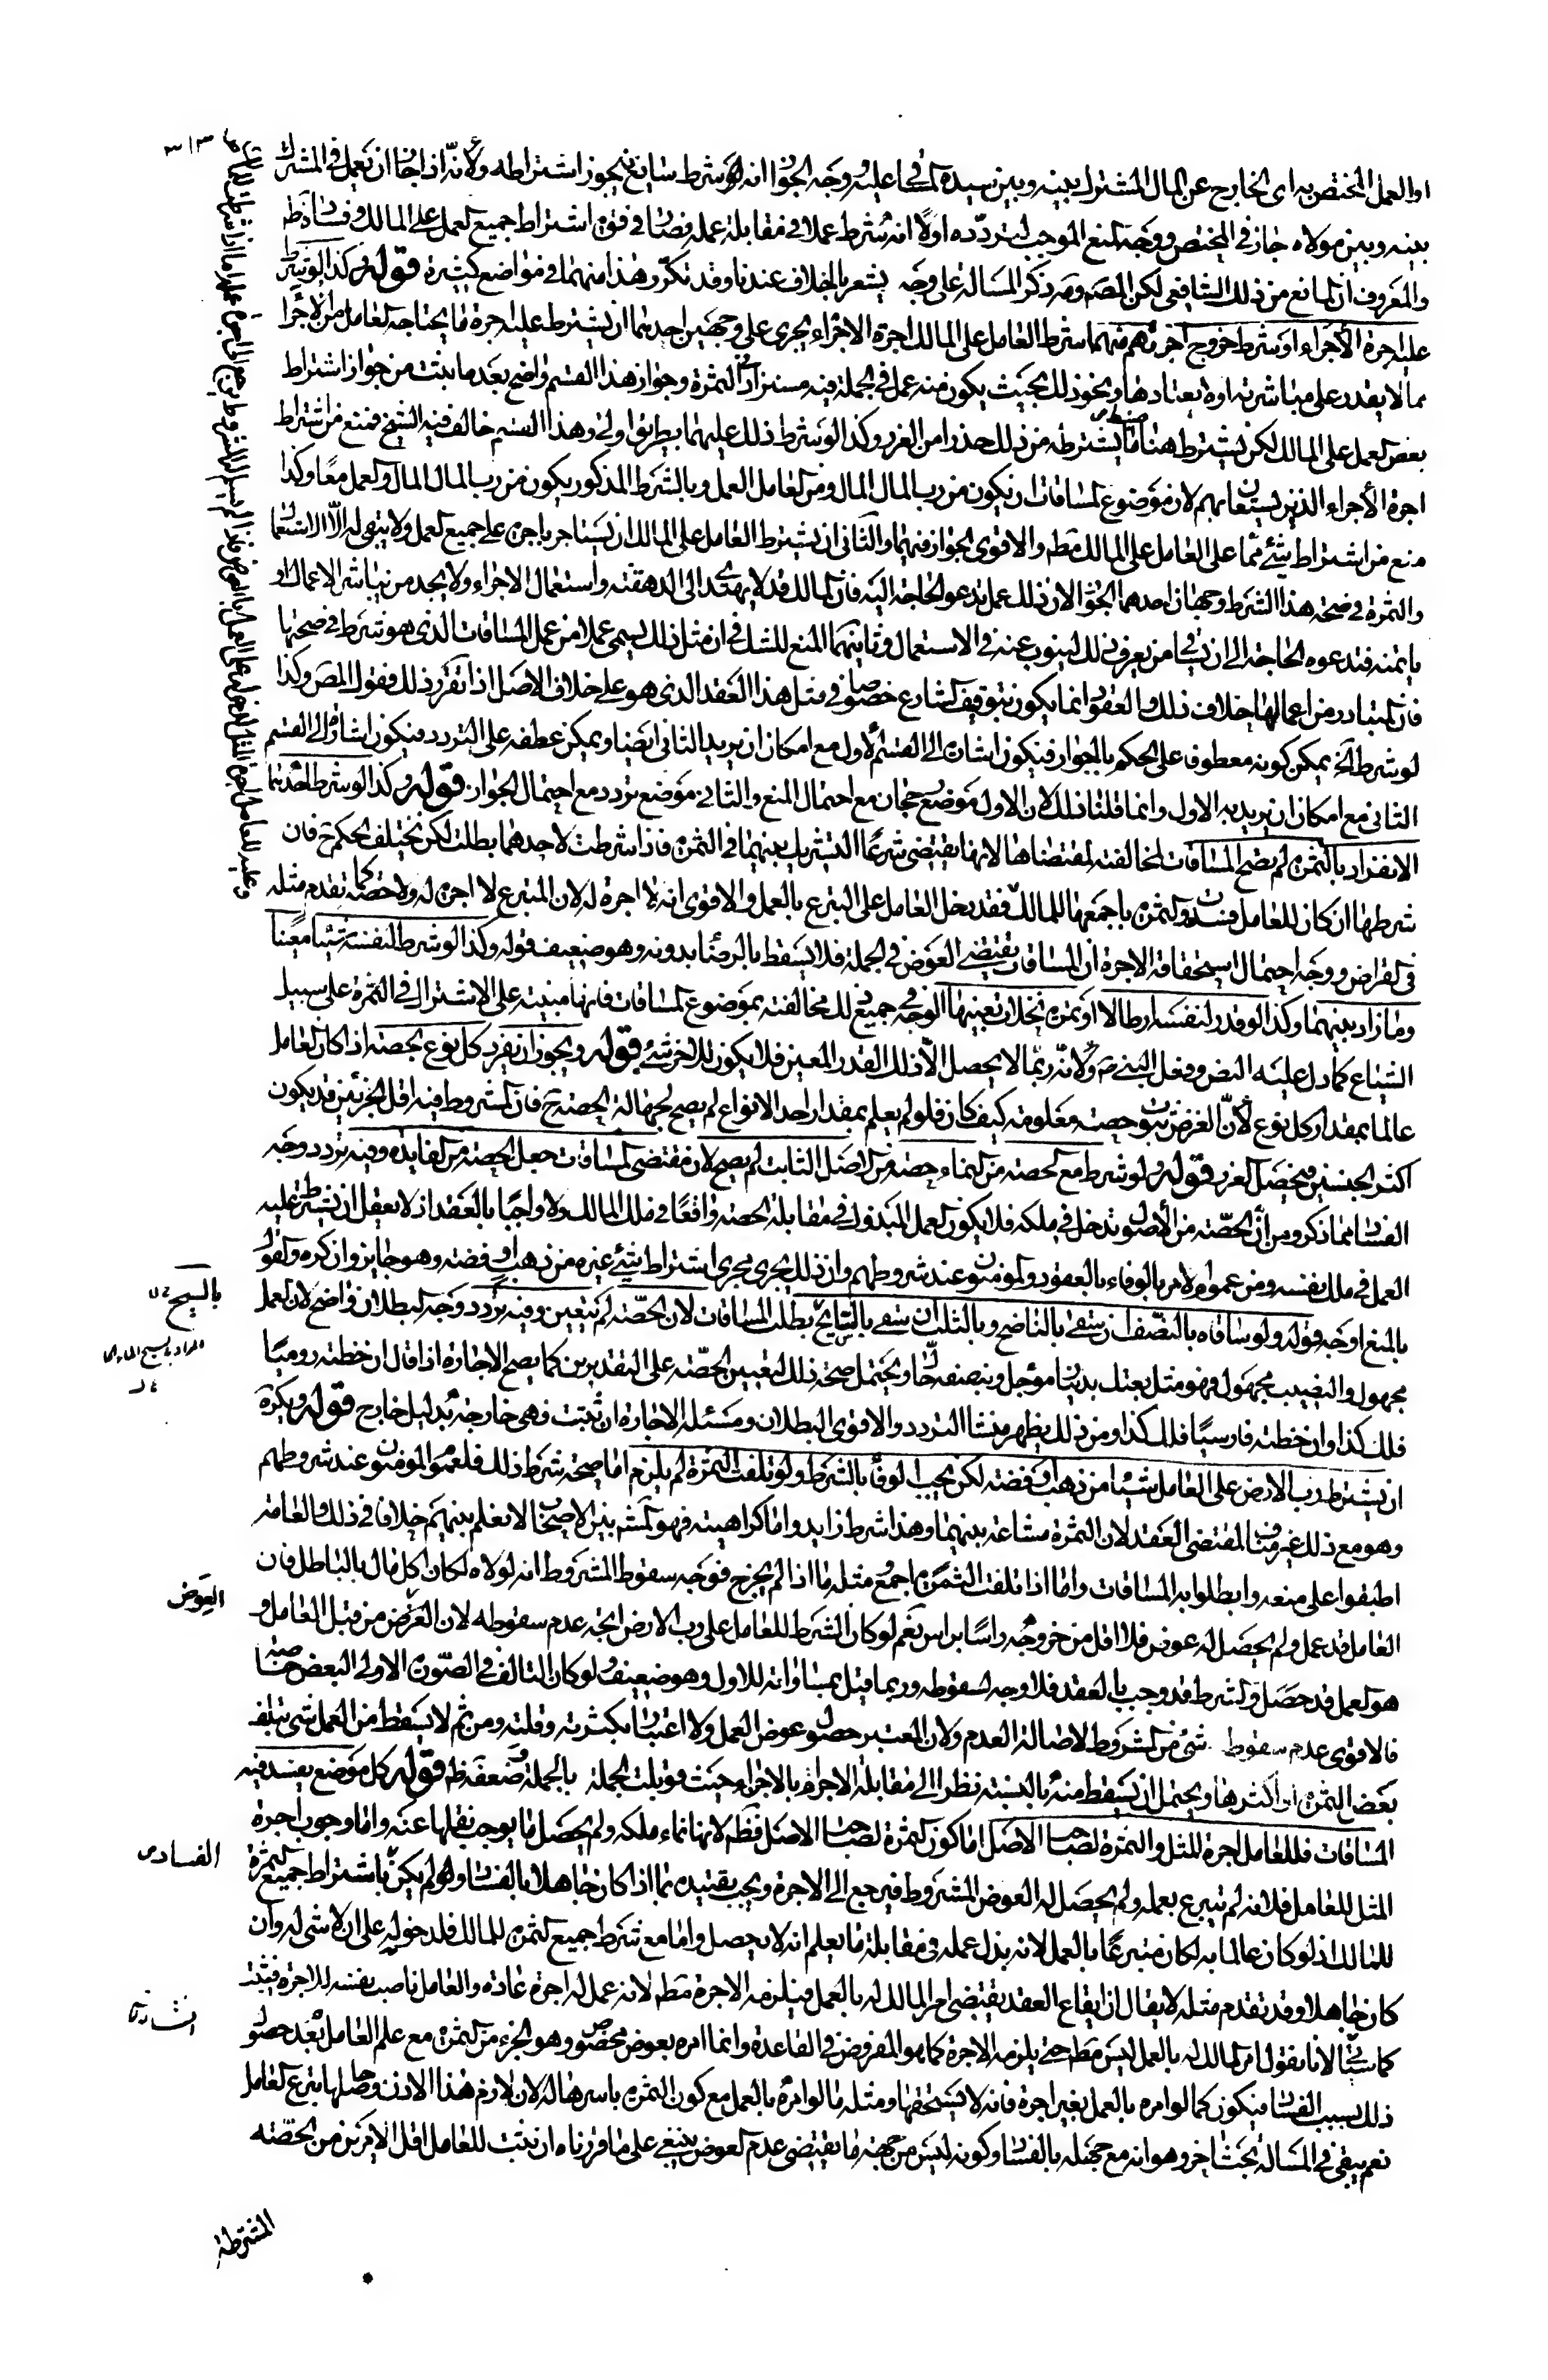 او العمل المختص به اى الخارج عن المال المشترك بينه وبين سيده المساقى عليه وجه الجواز انه شرط سايغ فيجوز اشتراطه ولانه اذا جاز ان يعمل فى المشترك
بينه وبين مولاه جاز فى المختص ووجه المنع الموجب لتردده اولا انه شرط عملا فى مقابلة عمله فصار فى قوة اشتراط جميع العمل على المالك وفساده ظ
والمعروف ان المانع من ذلك الشافعى لكن المصنف ذكر المسالة على وجه يشعر بالخلاف عندنا وقد تكرر هذا منهما فى مواضع كثيرة قوله وكذا لو شرط
عليه اجرة الاجراء او شرط خروج اجرتهم منهما شرط العامل على المالك اجرة الاجراء يجرى على وجهين احدهما ان يشترط عليه اجرة ما يحتاج العامل من الاجراء
مما لا يقدر على مباشرته او لم يعتادها ونحو ذلك بحيث يكون منه عمل فى الجملة فيه مستزاد الثمرة وجواز هذا القسم واضح بعد ما يثبت من جواز اشتراط
بعض العمل على المالك لكن يشترط هنا ضبط ما يشترطه من ذلك حذرا من الغرر وكذا لو شرط ذلك عليهما بطريق اولى وهذا القسم خالف فيه الشيخ فمنع من اشتراط
اجرة الاجراء الذين يستعان بهم لان موضوع المساقات ان يكون من رب المال المال ومن العامل العمل وبالشرط المذكور يكون من رب المال المال والعمل معا وكذا
منع من اشتراط شئ مما على العامل على المالك مط والاقوى الجواز فيهما والثانى ان يشترط العامل على المالك ان يستاجر باجرة على جميع العمل ولا يبقى له الا الاستعمال
والثمرة فى صحة هذا الشرط وجهان احدهما الجواز لان ذلك عمل تدعو الحاجة اليه فان المالك قد لا يهتدى الى الدهقنة واستعمال الاجراء ولا يجد من يباشر الاعمال او
يأتمنه فتدعوه الحاجة الى ان يساقى من يعرف ذلك لينوب عنه فى الاستعمال وثانيهما المنع للشك فى ان مثل ذلك يسمى عملا من عمل المساقات الذى هو شرط فى صحتها
فان المتبادر من اعمالها خلاف ذلك والعقود انما يكون بتوقيف الشارع خصوصا فى مثل هذا العقد الذى هو على خلاف الاصل اذا تقرر ذلك فقول المص وكذا
لو شرط الخ يمكن كونه معطوفا على الحكم بالجواز فيكون اشارة الى القسم الاول مع امكان ان يريد الثانى ايضا ويمكن عطفه على التردد فيكون اشارة الى القسم
الثانى مع امكان ان يريد به الاول وانما قلنا ذلك لان الاول موضع رجحان مع احتمال المنع والثانى موضع تردد مع احتمال الجواز قوله وكذا لو شرط احدهما
الانفراد بالثمرة لم يصح المساقات لمخالفته لمقتضاها لانها يقتضى شرعا التشريك بينهما فى الثمرة فاذا شرطت لاحدهما بطلت لكن يختلف الحكم ح فان
شرطها ان كان للعامل فسدت والثمرة باجمعها للمالك فقد دخل العامل على التبرع بالعمل والاقوى انه لا اجرة له لان المتبرع لا اجرة له ولا حصة كما تقدم مثله
فى القراض ووجه احتمال استحقاقه الاجرة ان المساقات يقتضى العوض فى الجملة فلا يسقط بالرضا بدونه وهو ضعيف قوله وكذا لو شرط لنفسه شيئا معينا
وما زاد بينهما وكذا لو قدر لنفسه ارطالا او ثمرة نخلات بعينها الوجه فى جميع ذلك مخالفته بموضوع المساقات فانها مبنية على الاشتراك فى الثمرة على سبيل
الشياع كما دل عليه النص وفعل النبى ص ولانه ربما لا يحصل الا ذلك القدر المعين فلا يكون للاخر شئ قوله ويجوز ان يفرد كل نوع بحصة اذا كان العامل
عالما بمقدار كل نوع لان الغرض ثبوت حصة معلومة كيف كان فلو لم يعلم بمقدار احد الانواع لم يصح لجهالة الحصة ح فان المشروط فيه اقل الجزئين قد يكون
اكثر الجنسين فيحصل الغرر قوله ولو شرط مع الحصة من النماء حصة من الاصل الثابت لم يصح لان مقتضى المساقات جعل الحصة من الفايدة وفيه تردد وجه
الفساد ما ذكر ومن ان الحصة من الاصول تدخل فى ملكه فلا يكون العمل المبذول فى مقابلة الحصة واقعا فى ملك المالك ولا واجبا بالعقد اذ لا يعقل ان يشترط عليه
العمل فى ملك نفسه ومن عموم الامر بالوفاء بالعقود والمؤمنون عند شروطهم وان ذلك يجرى مجرى اشتراط شئ غيره من ذهب او فضة وهو جايز وان كره والقول
بالمنع اوجه قوله ولو ساقاه بالنصف ان سقى بالناضح وبالثلث ان سقى بالسايح بطلت المساقات لان الحصة لم يتعين وفيه تردد وجه البطلان واضح لان العمل
مجهول والنصيب مجهول فهو مثل بعتك بدينار مؤجل وبنصفه حالا ويحتمل صحة ذلك لتعيين الحصة على التقديرين كما يصح الاجارة اذا قال ان خطته روميا
فلك كذا وان خطته فارسيا فلك كذا ومن ذلك يظهر منشا التردد والاقوى البطلان ومسئلة الاجارة ان ثبتت فهى خارجة بدليل خارج قوله ويكره
ان يشترط رب الارض على العامل شيئا من ذهب او فضة لكن يجب الوفاء بالشرط ولو تلفت الثمرة لم يلزم اما صحة شرط ذلك فلعموم المؤمنون عند شروطهم
وهو مع ذلك غير مناف لمقتضى العقد لان الثمرة مشاعة بينهما وهذا شرط زايد واما كراهيته فهو المشهور بين الاصحاب لا نعلم بينهم خلافا فى ذلك والعامة
اطبقوا على منعه وابطلوا به المساقات واما اذا تلفت الثمرة اجمع مثله ما اذا لم يخرج فوجه سقوط المشروط انه لولاه لكان اكل مال بالباطل فان
العامل قد عمل ولم يحصل له عوض فلا اقل من خروجه راسا براس نعم لو كان الشرط للعامل على رب الارض اتجه عدم سقوطه لان العوض من قبل العامل و
هو العمل قد حصل والشرط قد وجب بالعقد فلا وجه لسقوطه وربما قيل بمساواته للاول وهو ضعيف ولو كان التالف فى الصورة الاولى البعض خاصة
فالاقوى عدم سقوط شئ من المشروط لاصالة العدم ولان المعتبر حصول عوض العمل ولا اعتبار بكثرته وقلته ومن ثم لا يسقط من العمل شئ بتلف
بعض الثمرة او اكثرها ويحتمل ان يسقط منه بالنسبة نظرا الى مقابلة الاجزاء بالاجزاء حيث قوبلت الجملة بالجملة وضعفه ظ قوله كل موضع يفسد فيه
المساقات فللعامل اجرة المثل والثمرة لصاحب الاصل اما كون الثمرة لصاحب الاصل فظ لانها نماء ملكه ولم يحصل ما يوجب نقلها عنه واما وجوب اجرة
المثل للعامل فلانه لم يتبرع بعمله ولم يحصل له العوض المشروط فيرجع الى الاجرة ويجب تقييده بما اذا كان جاهلا بالفساد ولم يكن باشتراط جميع الثمرة
للمالك اذ لو كان عالما به لكان متبرعا بالعمل لانه بذل عمله فى مقابلة ما يعلم انه لا يحصل واما مع شرط جميع الثمرة للمالك فلدخوله على ان لا شئ له وان
كان جاهلا وقد تقدم مثله لا يقال ان ايقاع العقد يقتضى امر المالك له بالعمل فيلزمه الاجرة مط لانه عمل له اجرة عادة والعامل ناصب نفسه للاجرة فتثبت
كما سياتى لانا نقول امر المالك له بالعمل ليس مط حتى يلزمه الاجرة كما هو المفروض فى القاعدة وانما امره بعوض مخصوص وهو الجزء من الثمرة مع علم العامل بعد حصول
ذلك بسبب الفساد فيكون كما لو امره بالعمل بغير اجرة فانه لا يستحقها ومثله ما لو امره بالعمل مع كون الثمرة باسرها له لان لازم هذا الاذن وحاصلها تبرع العامل
نعم يبقى فى المسالة بحث اخر وهو انه مع جهله بالفساد وكونه ليس من جهة ما يقتضى عدم العوض ينبغى على ما قررناه ان يثبت للعامل اقل الامرين من الحصة
بالسيح
العوض
الفساد
المشترطة